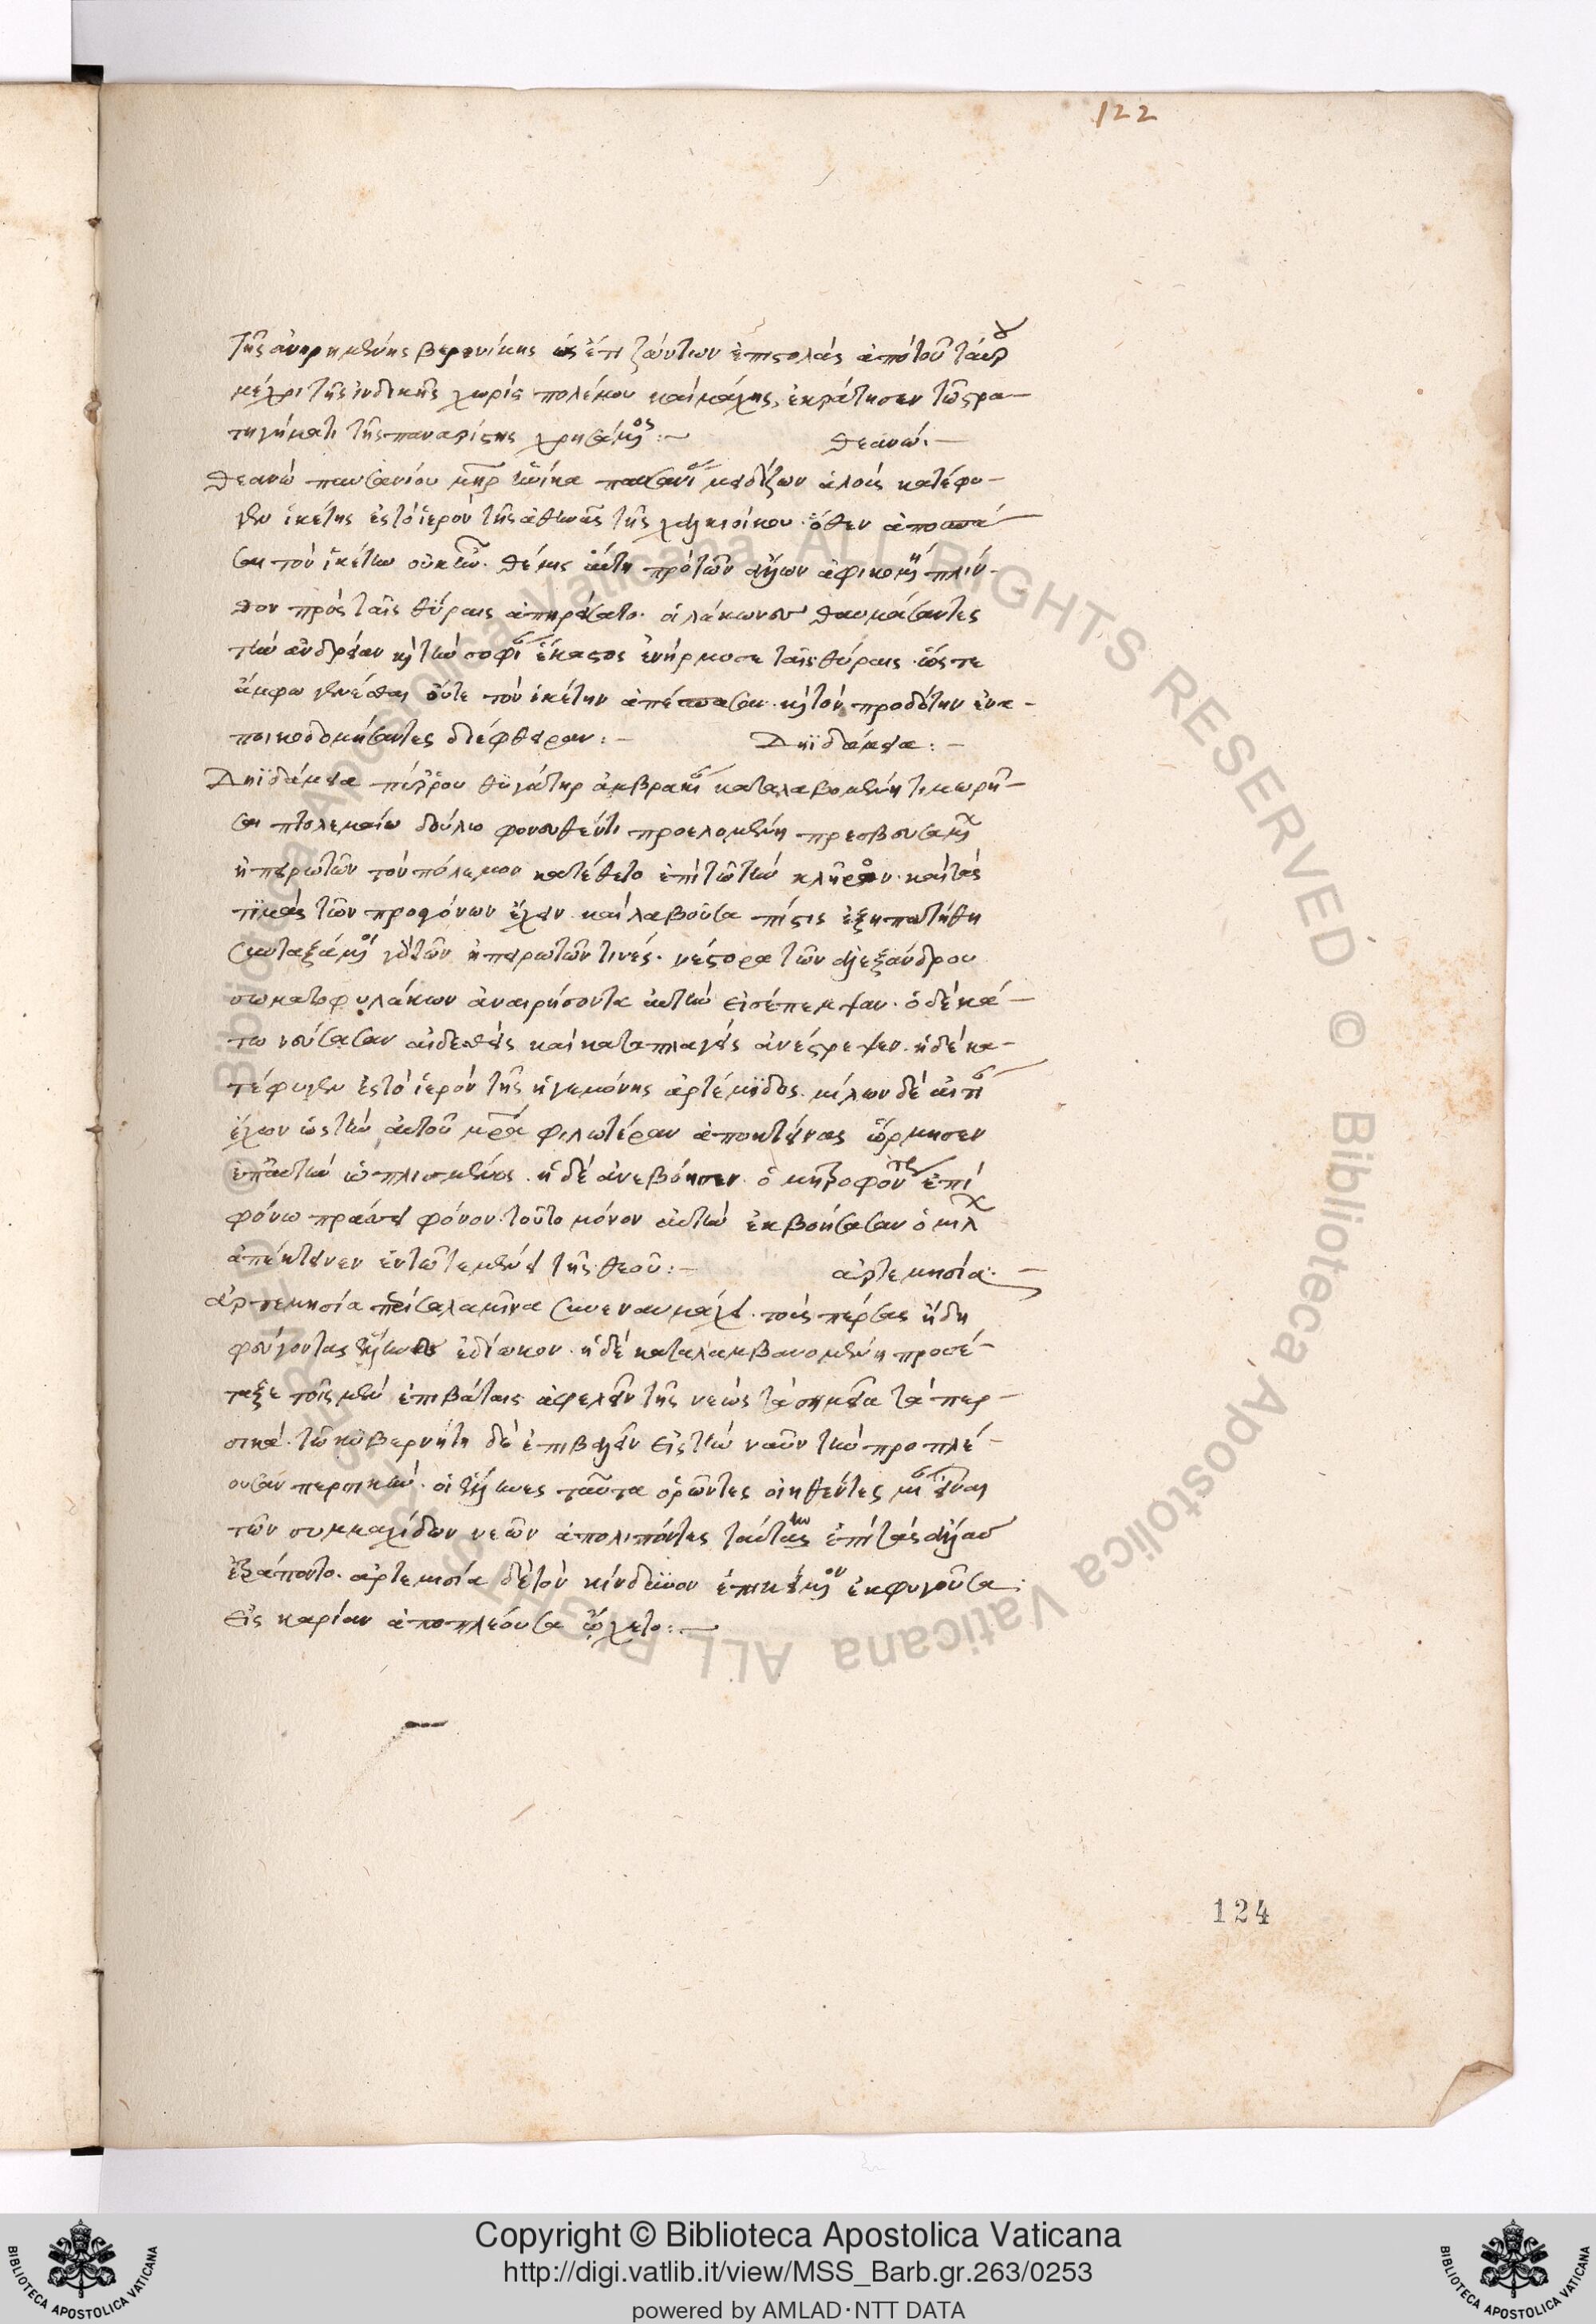 122
τῆς ἀνῃρημένης βερονίκης ὡς ἔτι ζώντων ἐπιστολάς ἀπὸ τοῦ ταύρου
μέχρι τῆς ἰνδικῆς χωρίς πολέμου καὶ μάχης ἐκράτησεν τῶ στρα-
τηγήματι τῆς παναρίστης χρησάμενος :~ θεανώ.—
θεανὼ παυσανίου μήτηρ ἡνίκα παυσανίας μηδίζων ἁλοὺς κατέφυ-
γεν ἱκέτης ἐς τὸ ἱερὸν τῆς ἀθηνᾶς τῆς χαλκιοίκου· ὅθεν ἀποσπά-
σαι τὸν ἱκέτην οὐκ ἦν θέμις αὕτη πρὸ τῶν ἄλλων ἀφικομένη πλίν-
θον πρὸς ταῖς θύραις ἀπηρείσατο· οἱ λάκωνες θαυμάσαντες
τὴν ἀνδρείαν καὶ τὴν σοφίαν ἕκαστος ἐνήρμοσε ταῖς θύραις· ὥστε
ἄμφω γενέσθαι οὔτε τὸν ἱκέτην ἀπέσπασαν· καὶ τὸν προδότην ἐνα-
ποικοδομήσαντες διέφθειραν :— Δηϊδάμεια :—
Δηϊδάμεια πύρρου θυγάτηρ ἀμβρακίαν καταλαβομένη τιμωρῆ-
σαι πτολεμαίω δούλω φονευθέντι προελομένη πρεσβευσαμένων
ἠπειρωτῶν τὸν πόλεμον κατέθετο ἐπὶ τῶ τὸν κλῆρον καὶ τὰς
τιμὰς τῶν προγόνων ἔχειν· καὶ λαβοῦσα πίστεις ἐξηπατήθη
συνταξάμενοι γὰρ τῶν ἠπειρωτῶν τινές· νέστορα τῶν ἀλεξάνδρου
σωματοφυλάκων ἀναιρήσοντα αὐτὴν εἰσέπεμψαν· ὁ δὲ κά-
τω νεύσασαν αἰδεσθεὶς καὶ καταπλαγεὶς ἀνέστρεψεν· ἡ δὲ κα-
τέφυγεν ἐς τὸ ἱερὸν τῆς ἡγεμόνης ἀρτέμιδος· μίλων δὲ αἰτίαν
ἔχων ὡς τὴν αὐτοῦ μητέρα φιλωτέραν ἀποκτείνας ὥρμησεν
ἐπ' αὐτὴν ὡπλισμένος· ἡ δὲ ἀνεβόησεν· ὁ μητροφόντης ἐπὶ
φόνω πράττει φόνον· τοῦτο μόνον αὐτὴν ἐκβοήσασαν ὁ μίλων
ἀπέκτεινεν ἐν τῶ τεμένει τῆς θεοῦ :— ἀρτεμισία·—
ἀρτεμισία περὶ σαλαμῖνα συνεναυμάχει· τοὺς πέρσας ἤδη
φεύγοντας ἕλληνες ἐδίωκον· ἡ δὲ καταλαμβανομένη προσέ-
ταξε τοῖς μὲν ἐπιβάταις ἀφελεῖν τῆς νεὼς τὰ σημεῖα τὰ περ-
σικά· τῶ κυβερνήτη δὲ ἐπιβαλεῖν εἰς τὴν ναῦν τὴν προπλέ-
ουσαν περσικήν· οἱ ἕλληνες ταῦτα ὁρῶντες οἰηθέντες μίαν εἶναι
τῶν συμμαχίδων νεῶν ἀπολιπόντες ταύτην ἐπὶ τὰς ἄλλας
ἐτράποντο· ἀρτεμισία δὲ τὸν κίνδυνον ἐπικείμενον ἐκφυγοῦσα
εἰς καρίαν ἀποπλέουσα ᾤχετο :—
124
Copyright © Biblioteca Apostolica Vaticana
http://digi.vatlib.it/view/MSS_Barb.gr.263/0253
powered by AMLAD·NTT DATA